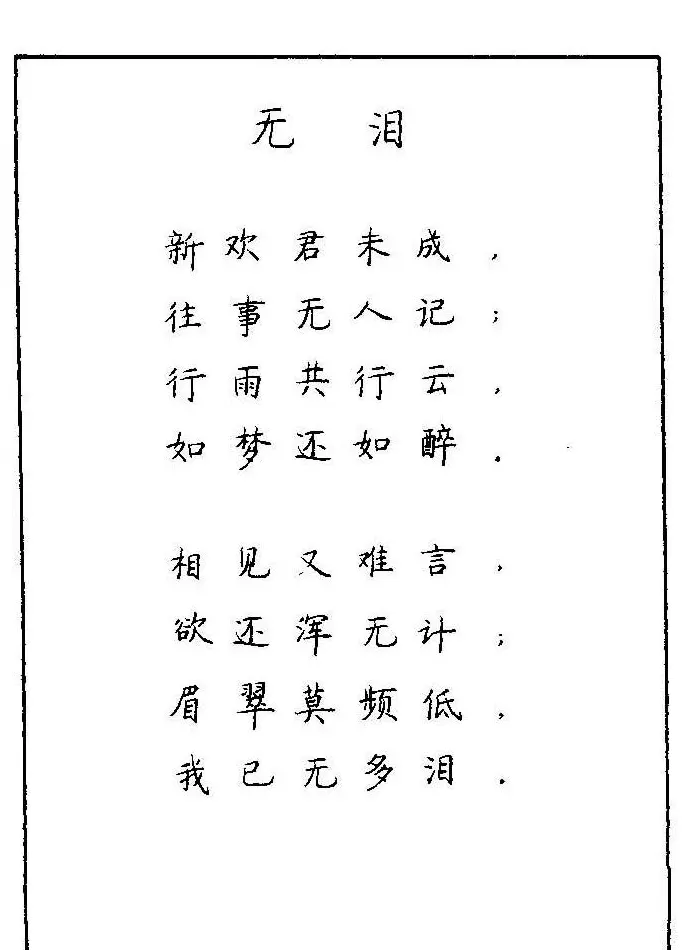 无泪
新欢君未成，
往事无人记；
行雨共行云，
如梦还如醉．
相见又难言，
欲还浑无计；
眉翠莫频低，
我已无多泪．